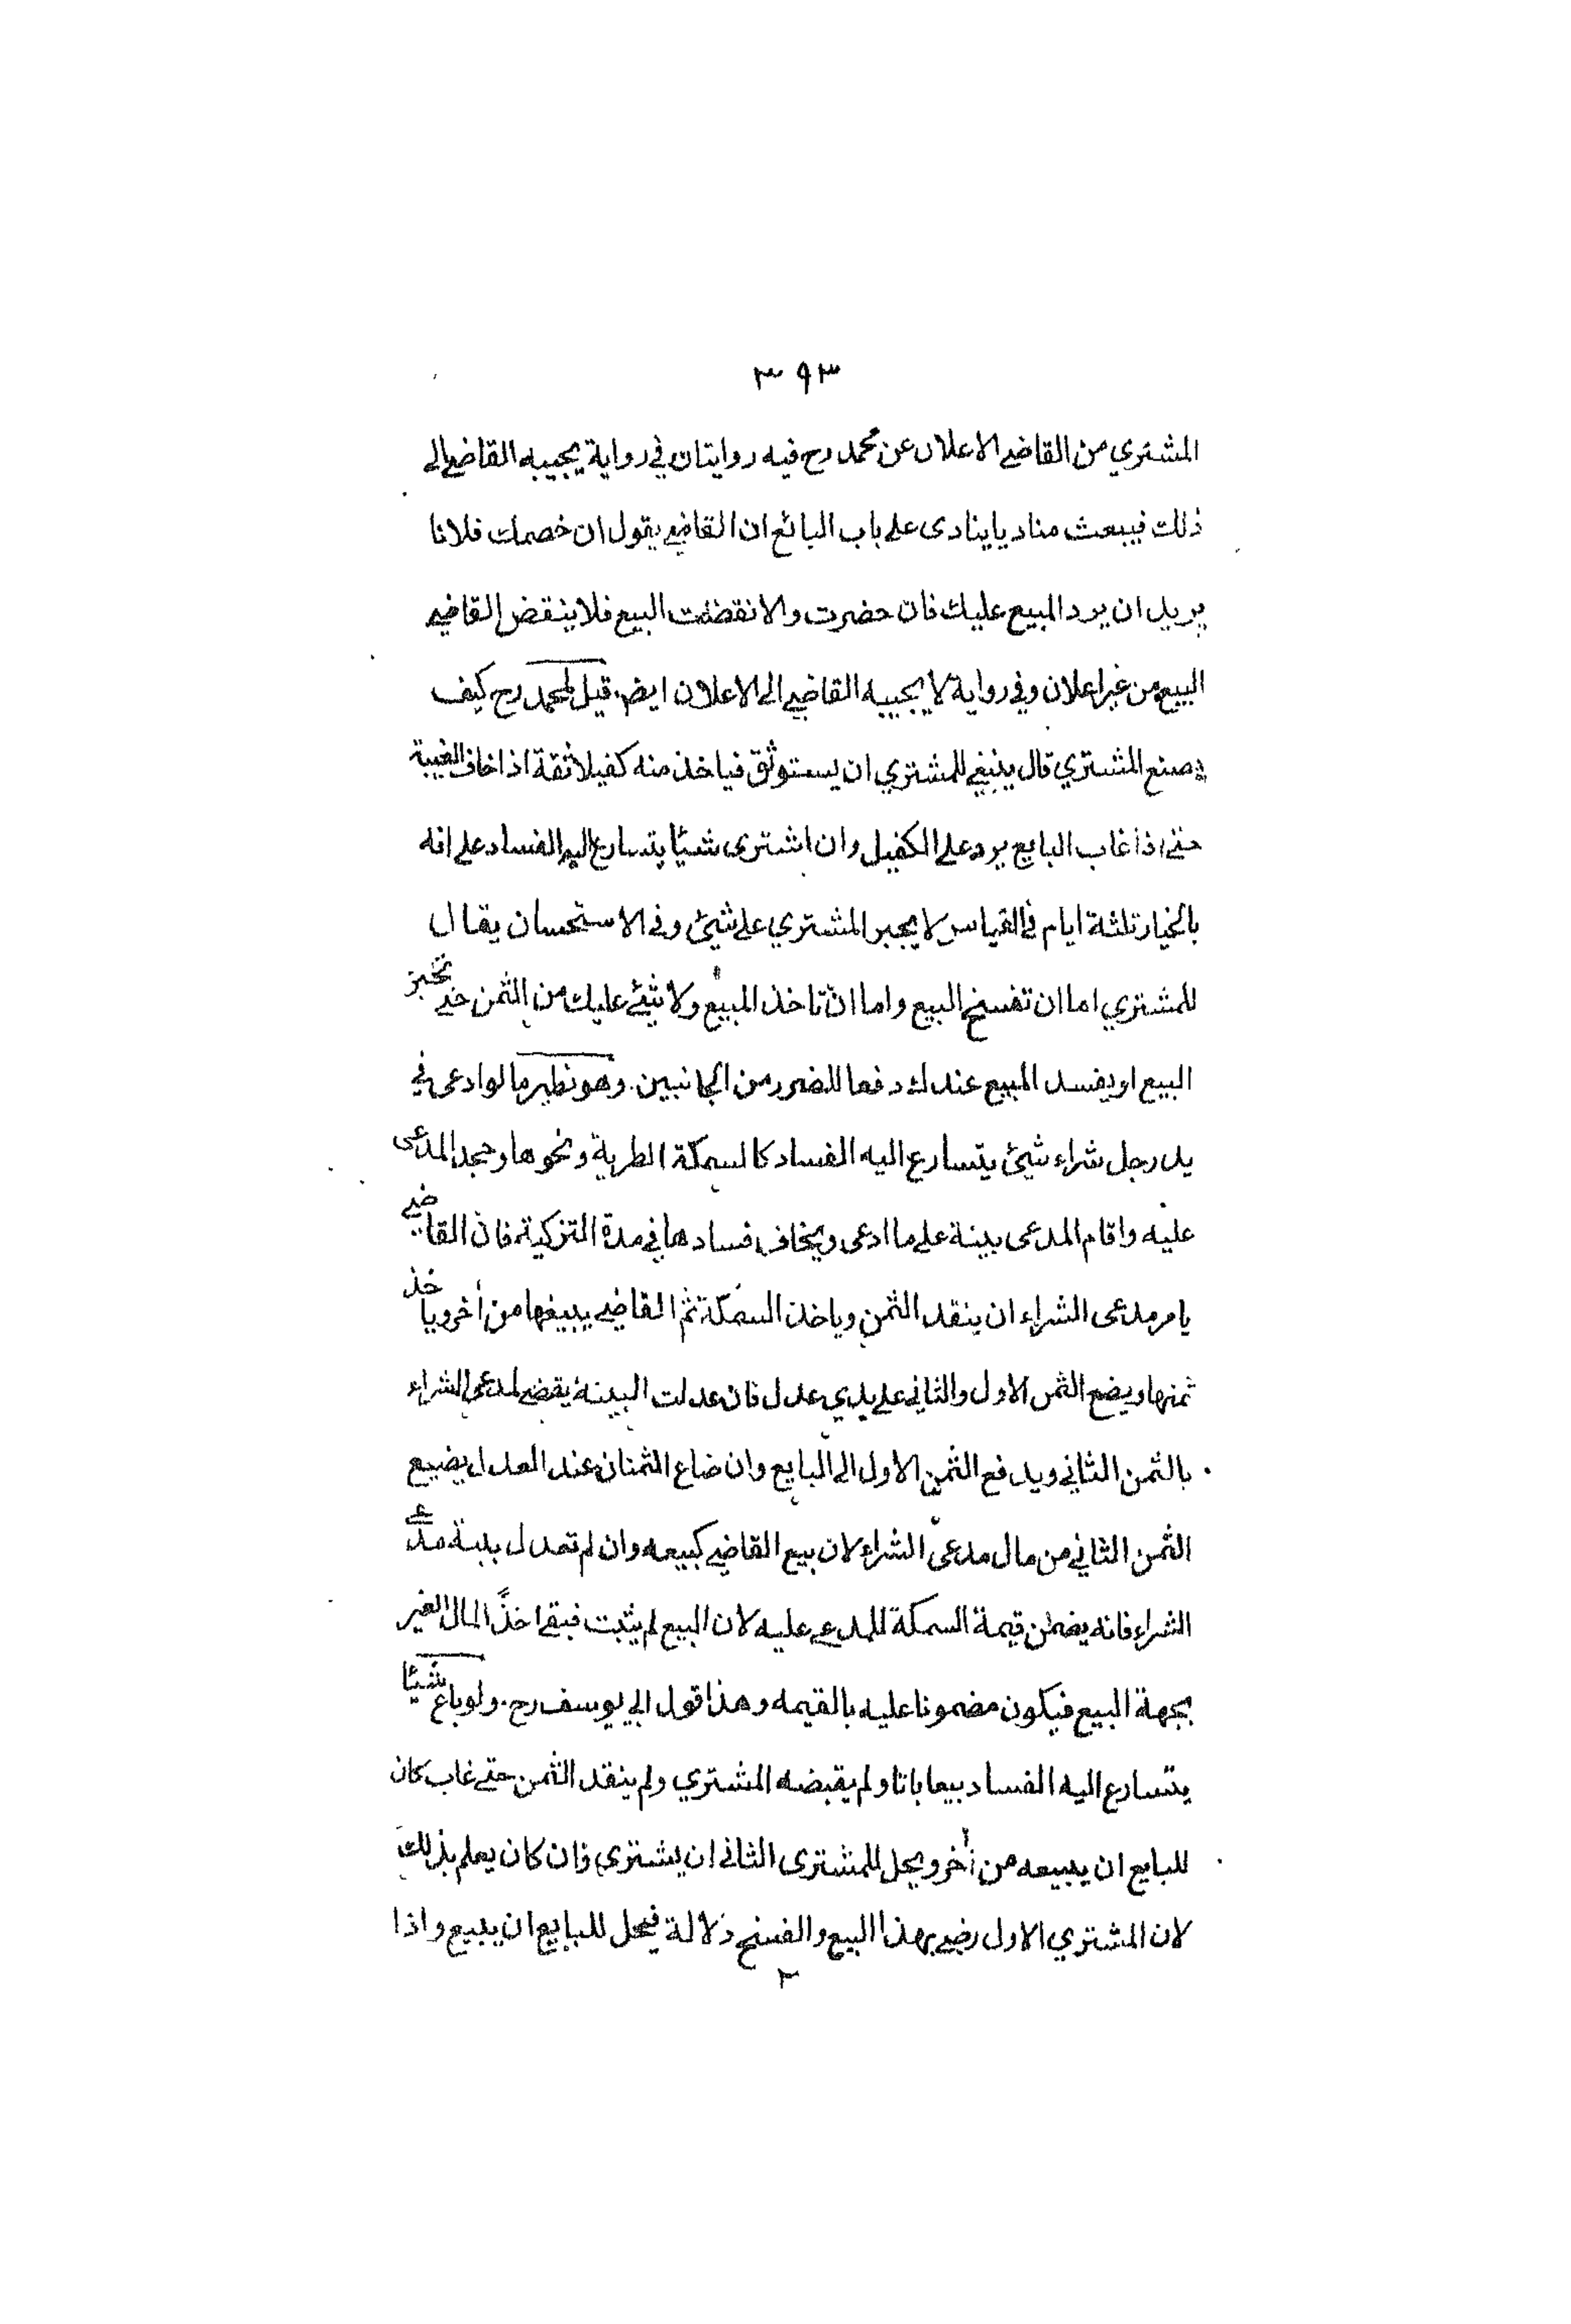 ٣٩٣
المشتري من القاضي الاعلان عن محمد رح فيه روايتان في رواية يجيبه القاضي الى
ذلك فيبعث مناديا ينادى على باب البائع ان القاضي يقول ان خصمك فلانا
يريد ان يرد المبيع عليك فان حضرت والا نقضت البيع فلا ينقض القاضي
البيع من غير اعلان وفي رواية لا يجيبه القاضي الى الاعلان ايض. قيل لمحمد رح كيف
يصنع المشتري قال ينبغي للمشتري ان يستوثق فياخذ منه كفيلا ثقة اذا خاف الغيبة
حتى اذا غاب البايع يرد على الكفيل وان اشترى شيئا يتسارع اليه الفساد على انه
بالخيار ثلثة ايام في القياس لا يجبر المشتري على شيئ وفي الاستحسان يقال
للمشتري اما ان تفسخ البيع واما ان تاخذ المبيع ولا شيئ عليك من الثمن حتى تجيز
البيع او يفسد المبيع عندك دفعا للضرر من الجانبين. وهو نظير ما لو ادعى في
يد رجل شراء شيئ يتسارع اليه الفساد كالسمكة الطرية ونحوها وجحد المدعى
عليه واقام المدعى بينة على ما ادعى ويخاف فسادها في مدة التزكية فان القاضي
يامر مدعى الشراء ان ينقد الثمن وياخذ السمكة ثم القاضي يبيعها من أخر وياخذ
ثمنها ويضع الثمن الاول والثاني على يدي عدل فان عدلت البينة يقضى لمدعى الشراء
بالثمن الثاني ويدفع الثمن الاول الى البايع وان ضاع الثمنان عند العدل يضيع
الثمن الثاني من مال مدعى الشراء لان بيع القاضي كبيعه وان لم تعدل بينة مدعى
الشراء فانه يضمن قيمة السمكة للمدعى عليه لان البيع لم يثبت فبقي اخذ المال الغير
بجهة البيع فيكون مضمونا عليه بالقيمه وهذا قول ابي يوسف رح. ولو باع شيئا
يتسارع اليه الفساد بيعا باتا ولم يقبضه المشتري ولم ينقد الثمن حتى غاب كان
للبايع ان يبيعه من أخر ويحل للمشترى الثاني ان يشتري وان كان يعلم بذلك
لان المشتري الاول رضي بهذا البيع والفسخ دلالة فيحل للبايع ان يبيع واذا